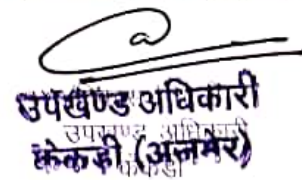 उपखण्ड अधिकारी
उपखण्ड अधिकारी
केकड़ी (अजमेर)
केकड़ी